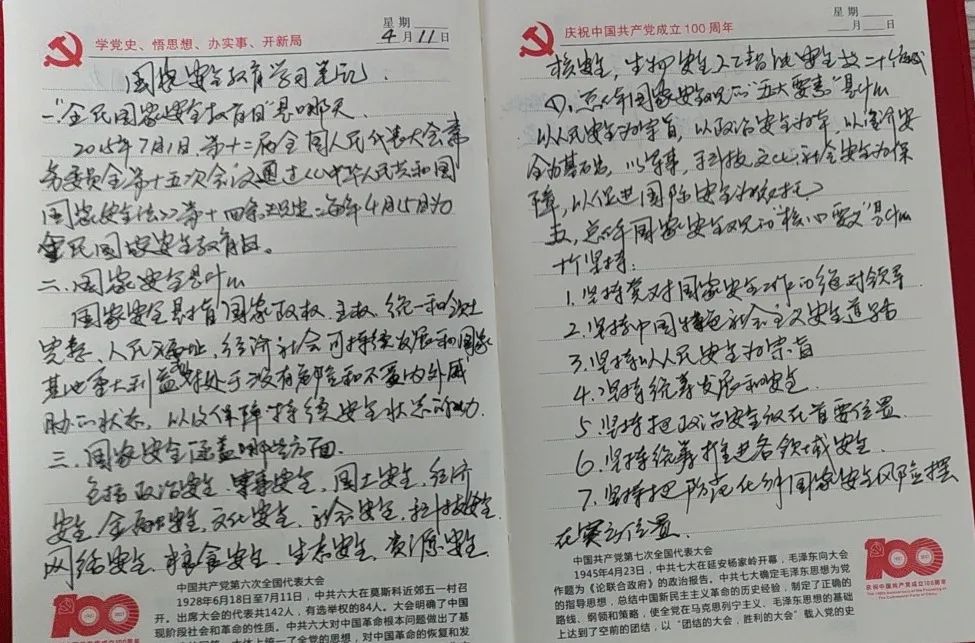 学党史、悟思想、办实事、开新局
星期
4月11日
国家安全教育学习笔记
一、"全民国家安全教育日"是哪天
2015年7月1日,第十二届全国人民代表大会常
务委员会第十五次会议通过《中华人民共和国
国家安全法》第十四条规定:每年4月15日为
全民国家安全教育日。
二、国家安全是什么
国家安全是指国家政权、主权、统一和领土
完整、人民福祉、经济社会可持续发展和国家
其他重大利益相对处于没有危险和不受内外威
胁的状态,以及保障持续安全状态的能力.
三、国家安全涵盖哪些方面.
包括政治安全、军事安全、国土安全、经济
安全、金融安全、文化安全、社会安全、科技安全、
网络安全、粮食安全、生态安全、资源安全、
中国共产党第六次全国代表大会
1928年6月18日至7月11日,中共六大在莫斯科近郊五一村召
开。出席大会的代表共142人,有选举权的84人。大会明确了中国
现阶段社会和革命的性质。中共六大对中国革命根本问题做出了基
100
庆祝中国共产党成立100周年
星期
月 日
核安全、生物安全、人工智能安全等二十个领域
四、总体国家安全观的"五大要素"是什么
以人民安全为宗旨,以政治安全为根本,以经济安
全为基础,以军事、科技、文化、社会安全为保
障,以促进国际安全为依托
五、总体国家安全观的"核心要义"是什么
十个坚持:
1.坚持党对国家安全工作的绝对领导
2.坚持中国特色社会主义安全道路
3.坚持以人民安全为宗旨
4.坚持统筹发展和安全.
5.坚持把政治安全放在首要位置
6.坚持统筹推进各领域安全.
7.坚持把防范化解国家安全风险摆
在突出位置
中国共产党第七次全国代表大会
1945年4月23日,中共七大在延安杨家岭开幕,毛泽东向大会
作题为《论联合政府》的政治报告。中共七大确定毛泽东思想为党
的指导思想,总结中国新民主主义革命的历史经验,制定了正确的
路线、纲领和策略,使全党在马克思列宁主义、毛泽东思想的基础
上达到了空前的团结,以"团结的大会,胜利的大会"载入党的史
100
庆祝中国共产党成立100周年